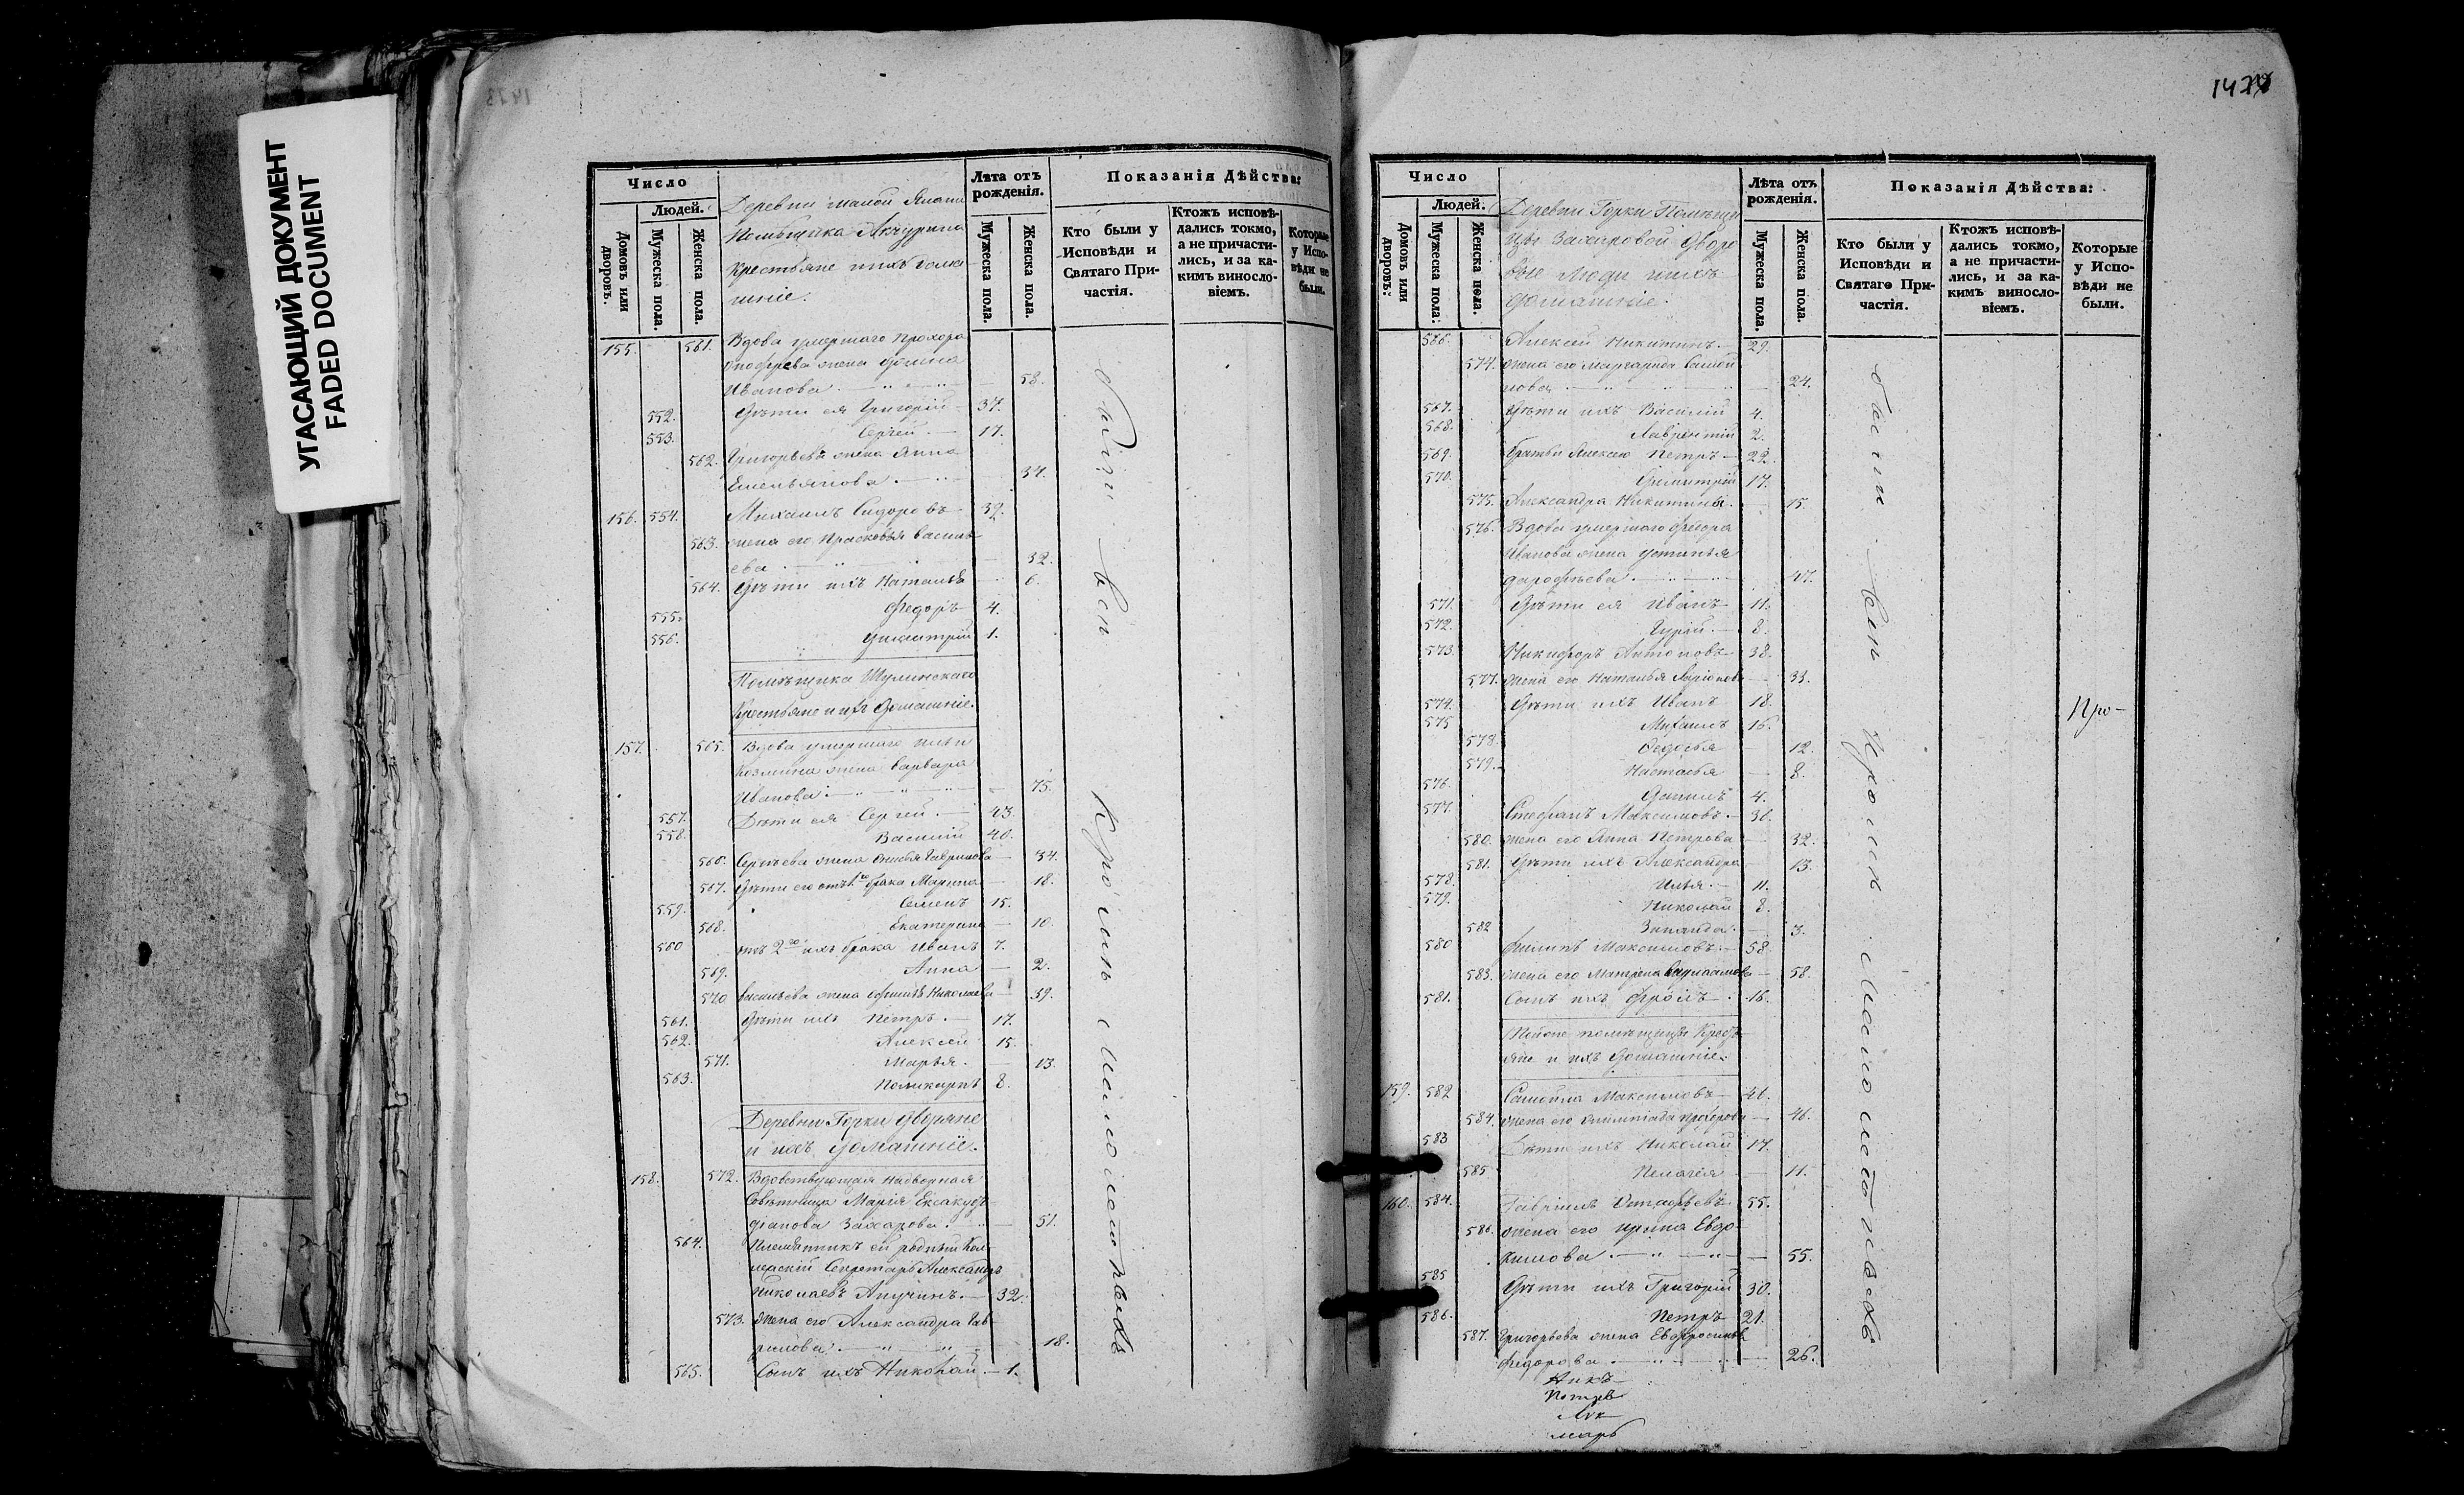 УГАСАЮЩИЙ ДОКУМЕНТ
FADED DOCUMENT
Число
Людей.
Домовъ или дворовъ.
Мужеска пола.
Женска пола.
Деревни малой
Помѣщика Акчурина
Крестьяне и ихъ дома-
шніе.
Лѣта отъ рожденія.
Мужеска пола.
Женска пола.
Показанія Дѣйства:
Кто были у Исповѣди и Святаго При-
частія.
Ктожъ исповѣ-
дались токмо,
а не причасти-
лись, и за ка-
кимъ винсло-
віемъ.
Которые
у Испо-
вѣди не
были.
155. 561. Вдова умершаго Прохора
жена
Иванова. 58.
552. Дѣти ея Григорій 37.
553. Сергей 17.
562. Григорьева жена Анна
Емельянова. 34.
156. 554. Михаилъ Сидоровъ 39.
563. жена его Прасковья Василь-
ева 32.
564. Дѣти ихъ Наталья 6.
555. Федоръ 4.
556. Димитрій 1.
Помѣщика Шулинскаго
Крестьяне и ихъ Домашніе.
157. 565. Вдова умершаго Ильи
Козмина жена Варвара
Иванова. 75.
557. Дѣти ея Сергей 43.
558. Василій 40.
566. Сергѣева жена Гаврилова 34.
567. Дѣти его отъ 1го брака Марина 18.
559. Семенъ 15.
568. Екатерина 10.
560 отъ 2го ихъ брака Иванъ 7.
569. Анна 2.
570 Васильева жена Николаева 39.
561. Дѣти ихъ Петръ 17.
562. Алексей 15.
571. Марья 13.
563. Поликарпъ 8.
Деревни Горки Дворяне
и ихъ домашніе.
158. 572. Вдовствующая Надворная
Совѣтница Марія
Захарова. 51.
564. Племянникъ ей родный Кол-
лежскій Секретарь Александръ
Николаевъ Анучинъ 32.
573. жена его Александра Гав-
рилова. 18.
565. Сынъ ихъ Николай 1.
были всѣ кромѣ малолѣтныхъ
Число
Людей.
Домовъ или дворовъ:
Мужеска пола:
Женска пола.
Деревни Горки Помѣщи-
цы Захаровой Дворо-
вые Люди и ихъ
домашніе.
Лѣта отъ рожденія.
Мужеска пола.
Женска пола.
Показанія Дѣйства:
Кто были у Исповѣди и Святаго При-
частія.
Ктожъ исповѣ-
дались токмо,
а не причасти-
лись, и за ка-
кимъ винсло-
віемъ.
Которые
у Испо-
вѣди не
были.
566. Алексей Никитинъ 29.
574. жена его Маргарита Самой-
лова 24.
567. Дѣти ихъ Василій 4.
568. Лаврентій 2.
569. Братья Алексею Петръ 22.
570. Димитрій 17.
575. Александра Никитины 15.
576. Вдова умершаго Федора
Иванова жена Устинья
Дарофеева 47.
571. Дѣти ея Иванъ 11.
572. Гурій 8.
573. Никифоръ Антоновъ 38.
577. жена его Наталья Ларіонова 33.
574. Дѣти ихъ Иванъ 18.
575 Михаилъ 16.
578. Федосья 12.
579. Настасья 8.
576. Данилъ 4.
577. Стефанъ Максимовъ 30.
580. жена его Анна Петрова 32.
581. Дѣти ихъ Александра 13.
578. Илья 11.
579. Николай 8.
582 Зинаида 3.
580 Филипъ Максимовъ 58.
583. жена его Матрена 58.
581. Сынъ ихъ Фролъ 16.
Тойже помѣщицы Кресть-
яне и ихъ Домашніе.
159. 582 Самойла Максимовъ 46.
584. жена его Олимпіада 46.
583 Дѣти ихъ Николай 17.
585 Пелагія 11.
160. 584. Гавріилъ 55.
586. жена его Ирина Евдо-
кимова 55.
585 Дѣти ихъ Григорій 30.
586. Петръ 21.
587. Григорьева жена Евфросинья
Федорова 26.
были всѣ кромѣ малолѣтныхъ
Про-